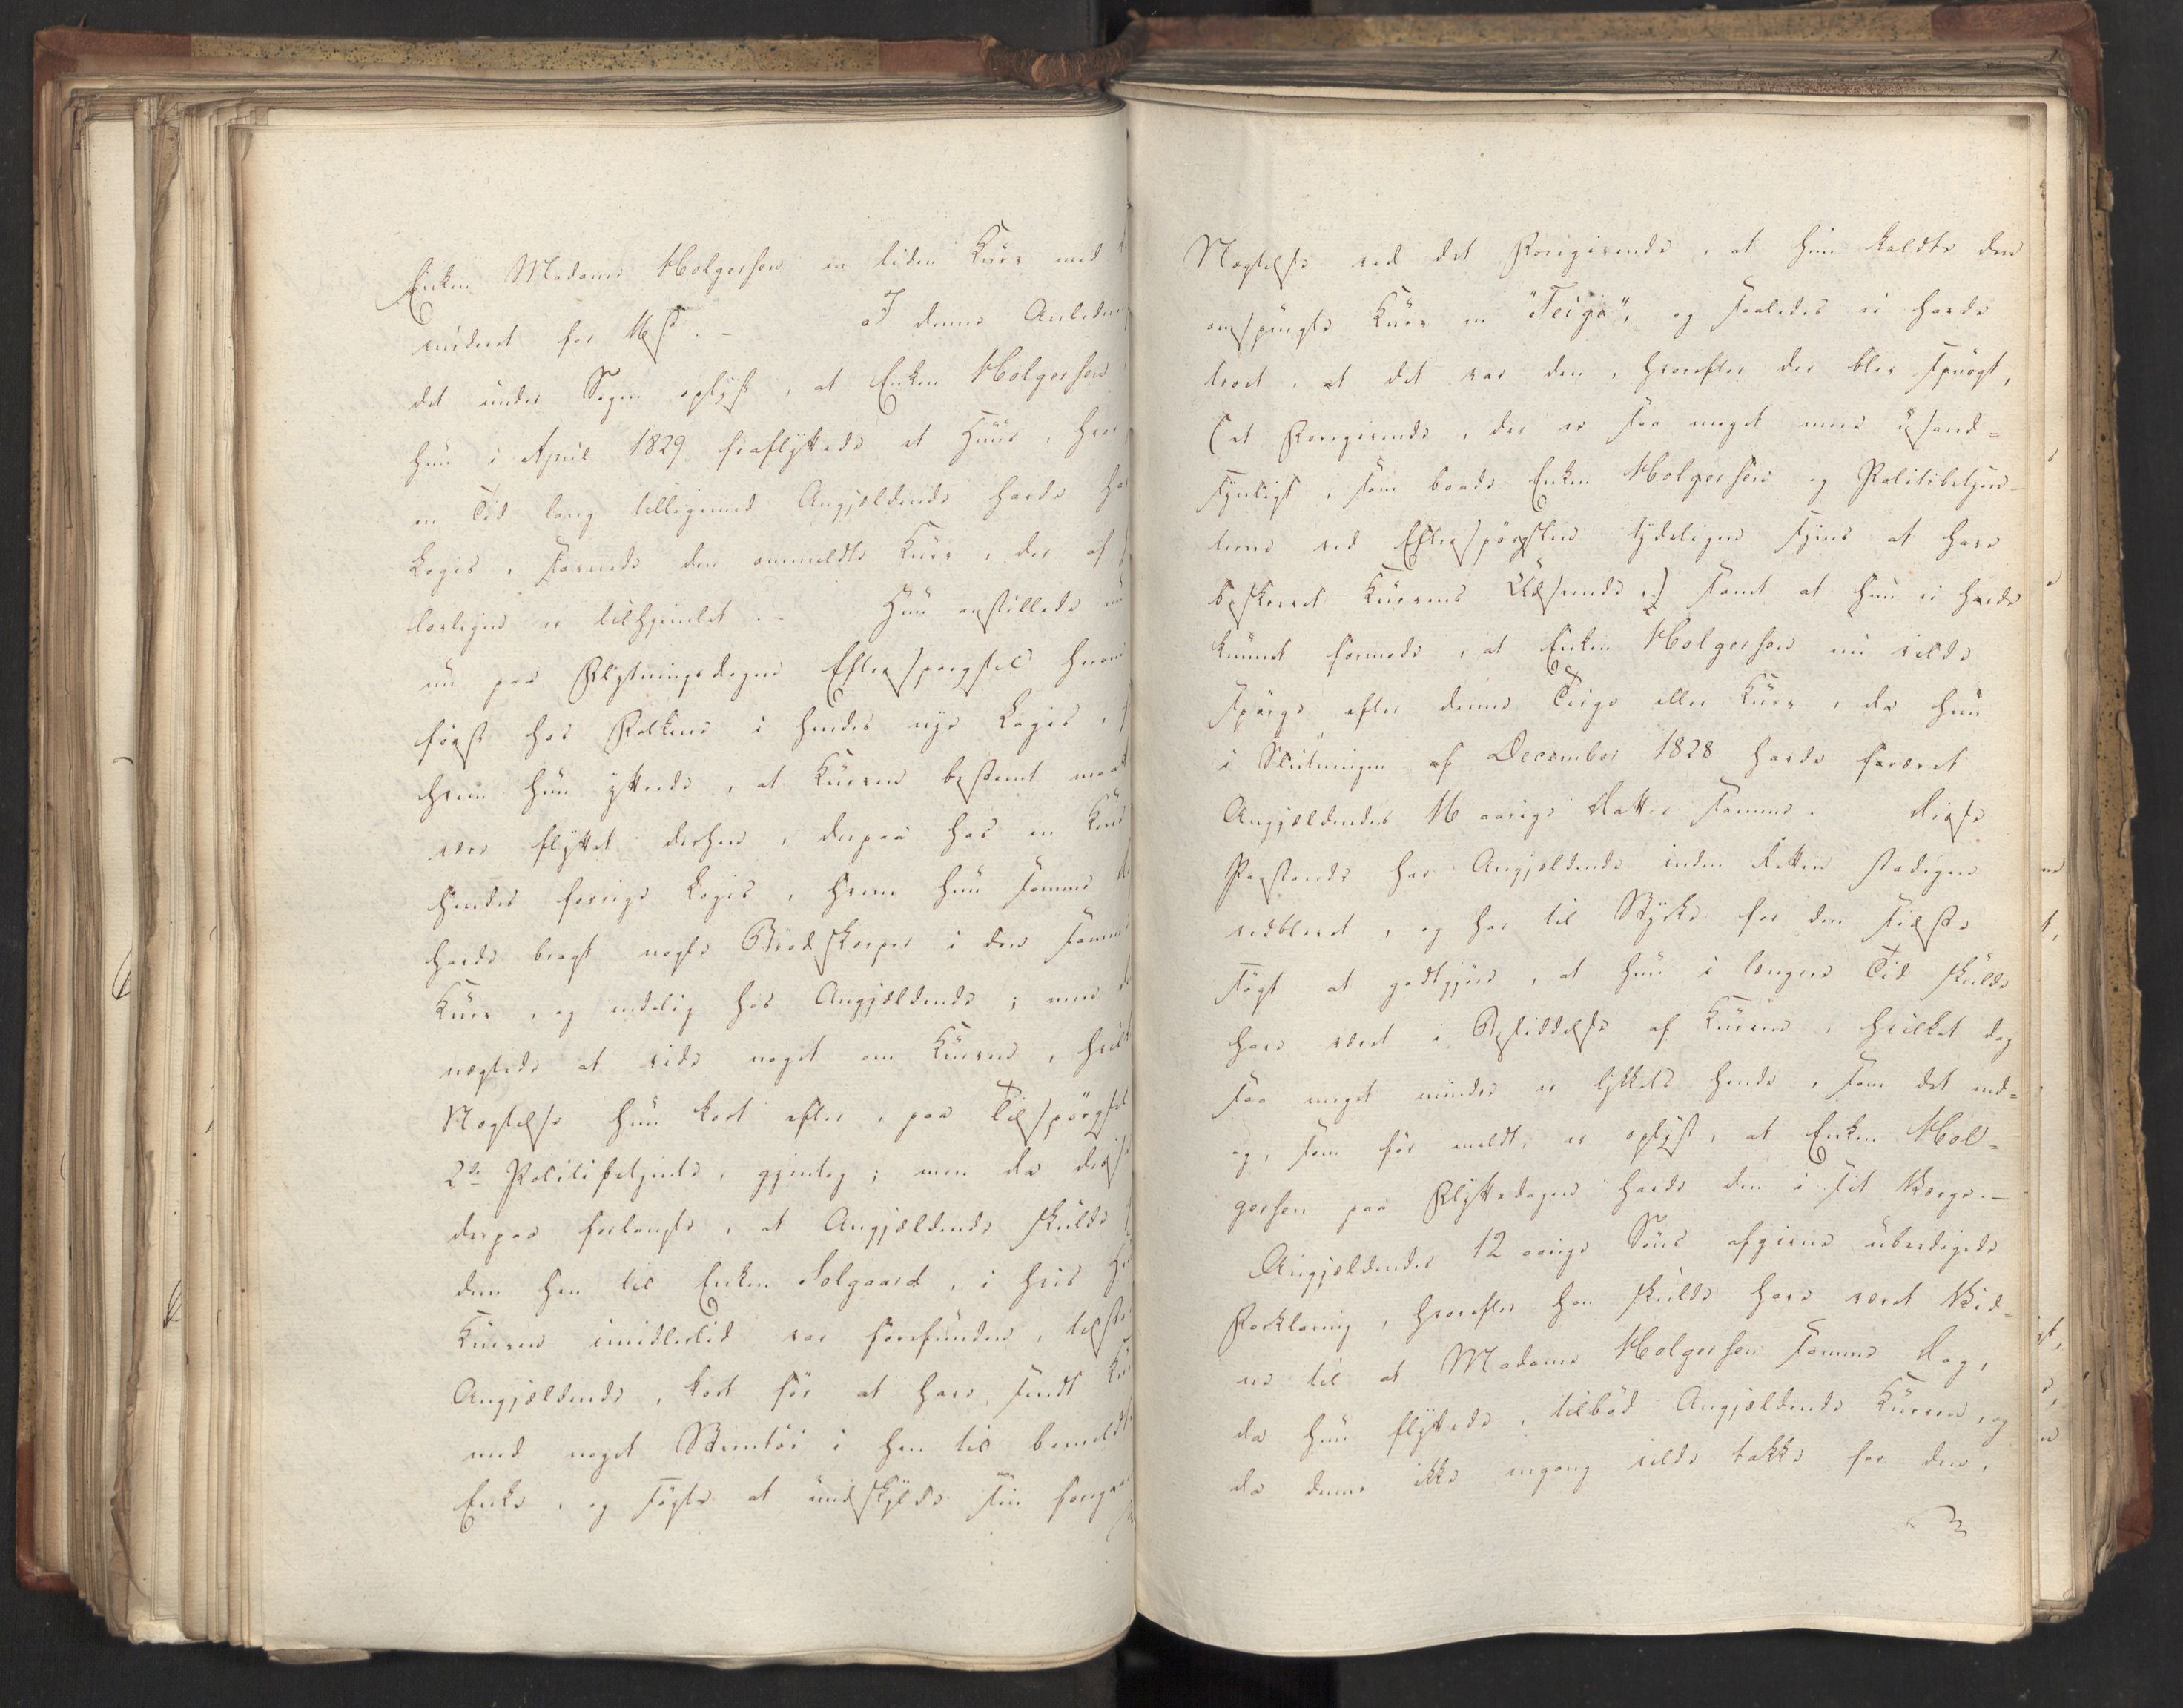 Enken Madame Holgersen en liden Kurv med
vurderet for 16 s. – I denne Anledning
det under Sagen oplyst, at Enken Holgersen
hun i April 1829 fraflyttede et Huus, hvor
en Tid lang tilligemed Angjældende havde
Logis, savnede den ommeldte Kurv, der af
lovligen er tilhjemlet. – Hun anstillede
nu paa Flytningsdagen Efterspørgsel
først hos Folkene i hendes nye Logis,
hvem hun yttrede, at Kurven bestemt maatte
være flyttet derhen, derpaa hos en Kone
hendes forrige Logis, hvem hun samme
havde bragt nogle Brødskorper i den samme
Kurv, og endelig hos Angjældende; men
negtede at vide noget om Kurven, hvilken
Negtelse hun kort efter, paa Tilspørgsel
2de Politibetjente, gjentog; men da disse
derpaa forlangte, at Angjældende skulde
dem hen til Enken Solgaard, i hvis
Kurven imidlertid var forefunden, tilstod
Angjældende, kort før at have sendt
med noget Steentøi i hen til bemeldte
Enke, og søgte at undskylde sin
Negtelse ved det Foregivende, at hun kaldte den
omspurgte Kurv en "Teige", og saaledes ei havde
troet, at det var den, hvorefter der blev spurgt,
(et Foregivende, der er saa meget mere usand=
synligt, som baade Enken Holgersen og Politibetjen=
terne ved Efterspørgslen tydeligen synes at have
beskrevet Kurvens Udseende,) samt at hun ei havde
kunnet formode, at Enken Holgersen nu vilde
spørge efter denne Teige eller Kurv, da hun
i Slutningen af December 1828 havde foræret
Angjældendes 16 aarige Datter samme. Disse
Paastande har Angjældende inden Retten stadigen
vedblevet, og har til Styrke for den sidste
søgt at godtgjøre, at hun i længere Tid skulde
have været i Besiddelse af Kurven, hvilket dog
saa meget mindre er lykket hende, som det end=
og, som før meldt, er oplyst, at Enken Hol=
gersen paa Flyttedagen havde den i sit Værge. –
Angjældendes 12 aarige Søns afgivne ubeedigede
Forklaring, hvorefter han skulde have været Vid=
ne til at Madame Holgersen samme Dag,
da hun flyttede, tilbød Angjældende Kurven, og
da denne ikke engang vilde takke for den,